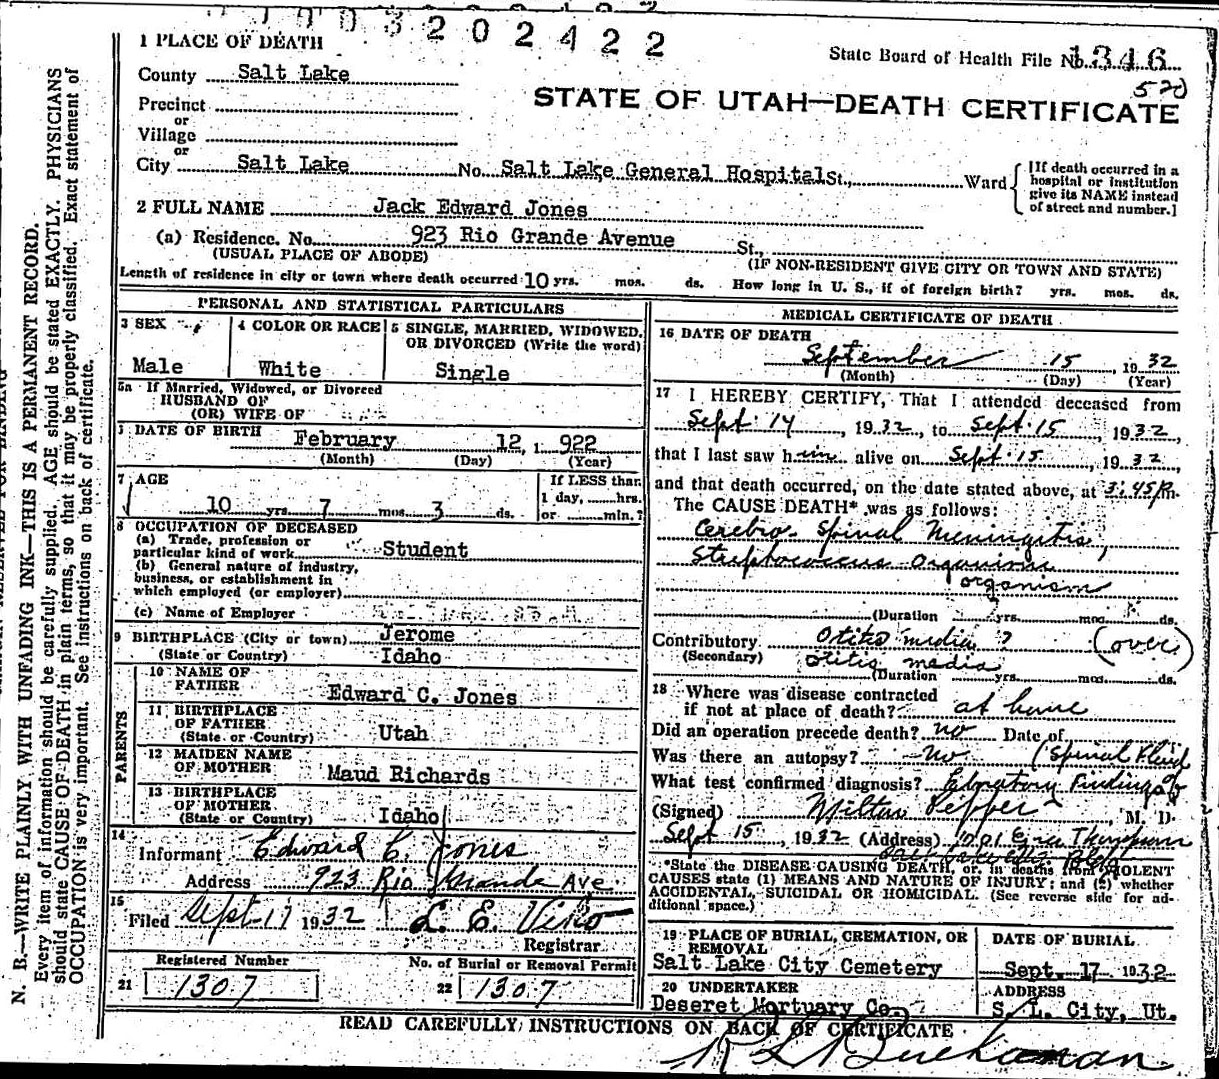 1003202422
State Board of Health File No. 1346
520
STATE OF UTAH—DEATH CERTIFICATE
1 PLACE OF DEATH
County Salt Lake
Precinct
or
Village
or
City Salt Lake No. Salt Lake General Hospital St., Ward
[If death occurred in a
hospital or institution
give its NAME instead
of street and number.]
2 FULL NAME Jack Edward Jones
(a) Residence. No. 923 Rio Grande Avenue St.,
(USUAL PLACE OF ABODE) (IF NON-RESIDENT GIVE CITY OR TOWN AND STATE)
Length of residence in city or town where death occurred 10 yrs. mos. ds. How long in U. S., if of foreign birth? yrs. mos. ds.
PERSONAL AND STATISTICAL PARTICULARS
3 SEX
Male
4 COLOR OR RACE
White
5 SINGLE, MARRIED, WIDOWED,
OR DIVORCED (Write the word)
Single
5a If Married, Widowed, or Divorced
HUSBAND OF
(OR) WIFE OF
DATE OF BIRTH February 12, 1922
(Month) (Day) (Year)
7 AGE
10 yrs. 7 mos. 3 ds.
If LESS than
1 day, hrs.
or min.?
8 OCCUPATION OF DECEASED
(a) Trade, profession or
particular kind of work Student
(b) General nature of industry,
business, or establishment in
which employed (or employer)
(c) Name of Employer
9 BIRTHPLACE (City or town) Jerome
(State or Country) Idaho
PARENTS
10 NAME OF
FATHER Edward C. Jones
11 BIRTHPLACE
OF FATHER
(State or Country) Utah
12 MAIDEN NAME
OF MOTHER Maud Richards
13 BIRTHPLACE
OF MOTHER
(State or Country) Idaho
14
Informant Edward C. Jones
Address 923 Rio Grande Ave.
15
Filed Sept-17 1932 L. E. Viko
Registrar
Registered Number
21 1307
No. of Burial or Removal Permit
22 1307
MEDICAL CERTIFICATE OF DEATH
16 DATE OF DEATH
September 15, 1932
(Month) (Day) (Year)
17 I HEREBY CERTIFY, That I attended deceased from
Sept. 14, 1932, to Sept. 15, 1932,
that I last saw him alive on Sept. 15, 1932,
and that death occurred, on the date stated above, at 3:45 P.m.
The CAUSE DEATH* was as follows:
Cerebro-Spinal Meningitis,
Streptococcus Organism
organism
(Duration yrs. mos. ds.
Contributory Otitis media ? (over)
(Secondary) otitis media
(Duration yrs. mos. ds.
18 Where was disease contracted
if not at place of death? at home
Did an operation precede death? no Date of
Was there an autopsy? No (Spinal Fluid
What test confirmed diagnosis? Laboratory Findings of
(Signed) Milton Pepper, M. D.
Sept 15, 1932 (Address) 1001
*State the DISEASE CAUSING DEATH, or, in deaths from VIOLENT
CAUSES state (1) MEANS AND NATURE OF INJURY; and (2) whether
ACCIDENTAL, SUICIDAL OR HOMICIDAL. (See reverse side for ad-
ditional space.)
19 PLACE OF BURIAL, CREMATION, OR
REMOVAL
Salt Lake City Cemetery
DATE OF BURIAL
Sept. 17 1932
20 UNDERTAKER
Deseret Mortuary Co.
ADDRESS
S. L. City, Ut.
READ CAREFULLY INSTRUCTIONS ON BACK OF CERTIFICATE
R L Buchanan
N. B.—WRITE PLAINLY WITH UNFADING INK—THIS IS A PERMANENT RECORD.
Every item of information should be carefully supplied. AGE should be stated EXACTLY. PHYSICIANS
should state CAUSE OF DEATH in plain terms, so that it may be properly classified. Exact statement of
OCCUPATION is very important. See instructions on back of certificate.